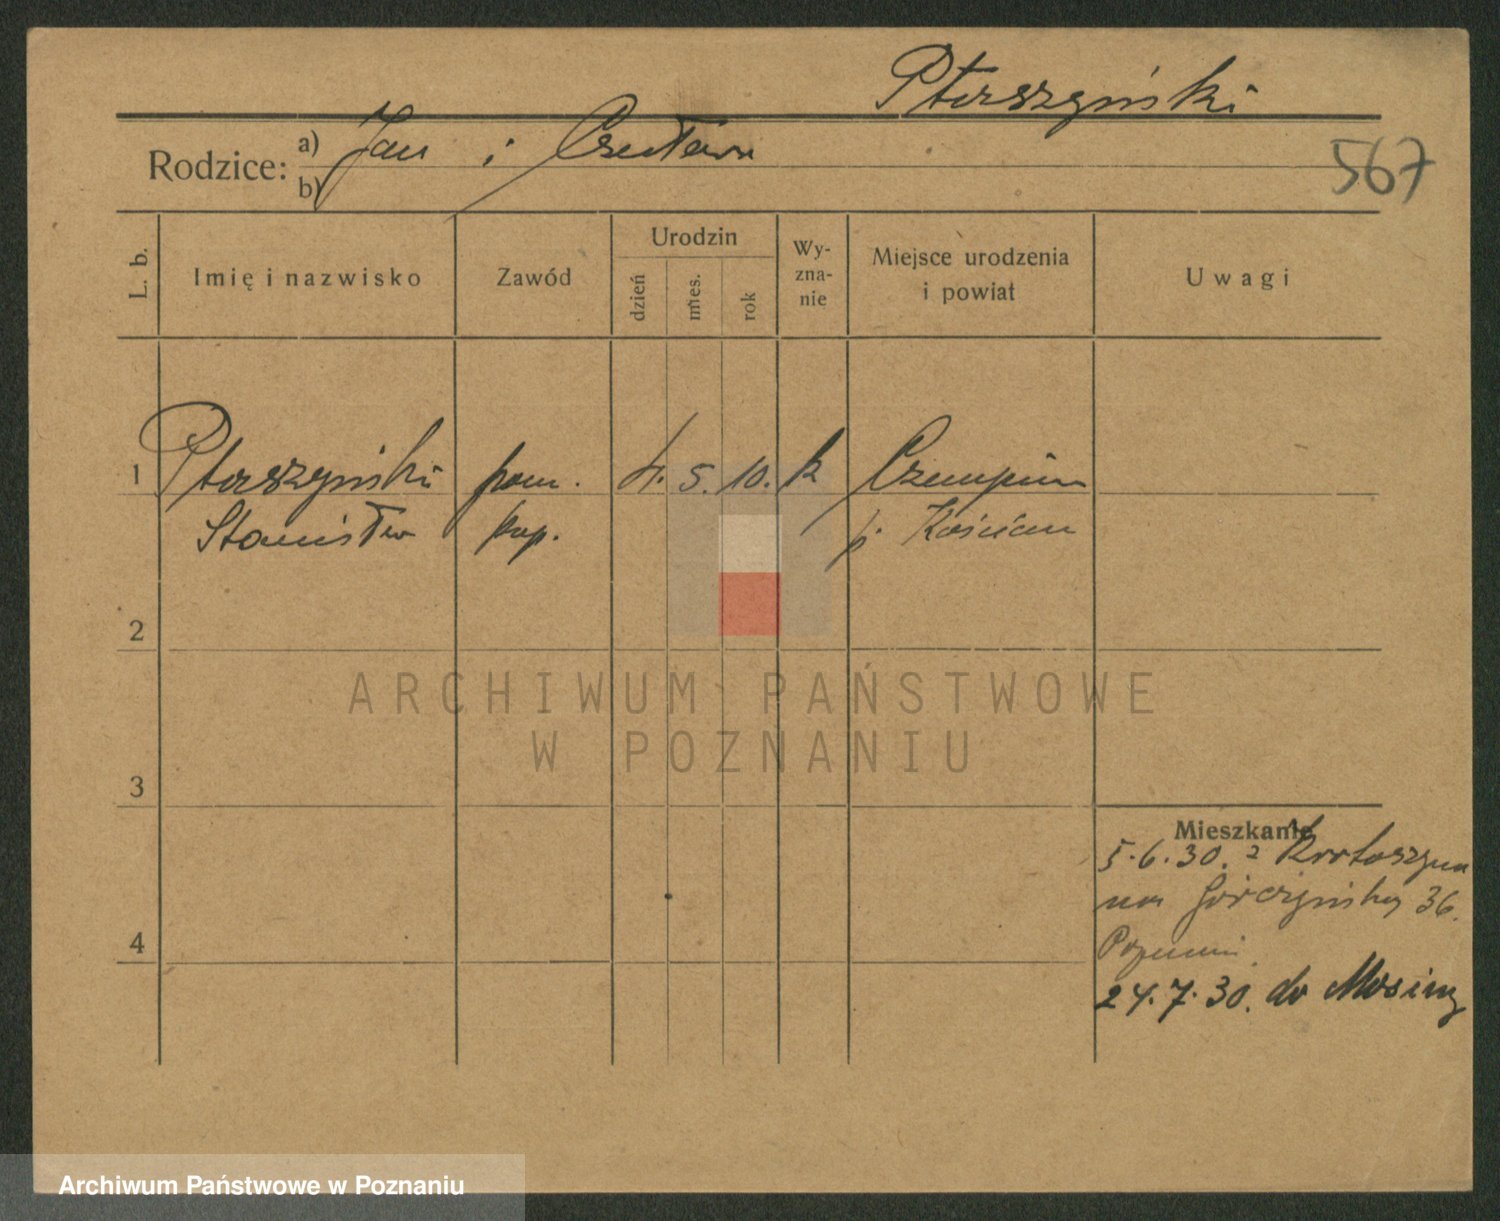 Ptaszyński
567
Rodzice: a) Jan i Czesława
b)
L. b.
Imię i nazwisko
Zawód
Urodzin
dzień
mies.
rok
Wy-
zna-
nie
Miejsce urodzenia
i powiat
Uwagi
1 Ptaszyński pom. 4. 5. 10. k Czempiń
Stanisław kup. p. Kościan
2
3
4
Mieszkanie
5.6.30. z Krotoszyna
na Górczyńską 36.
Poznań
24.7.30. do Mosiny
ARCHIWUM PAŃSTWOWE
W POZNANIU
Archiwum Państwowe w Poznaniu